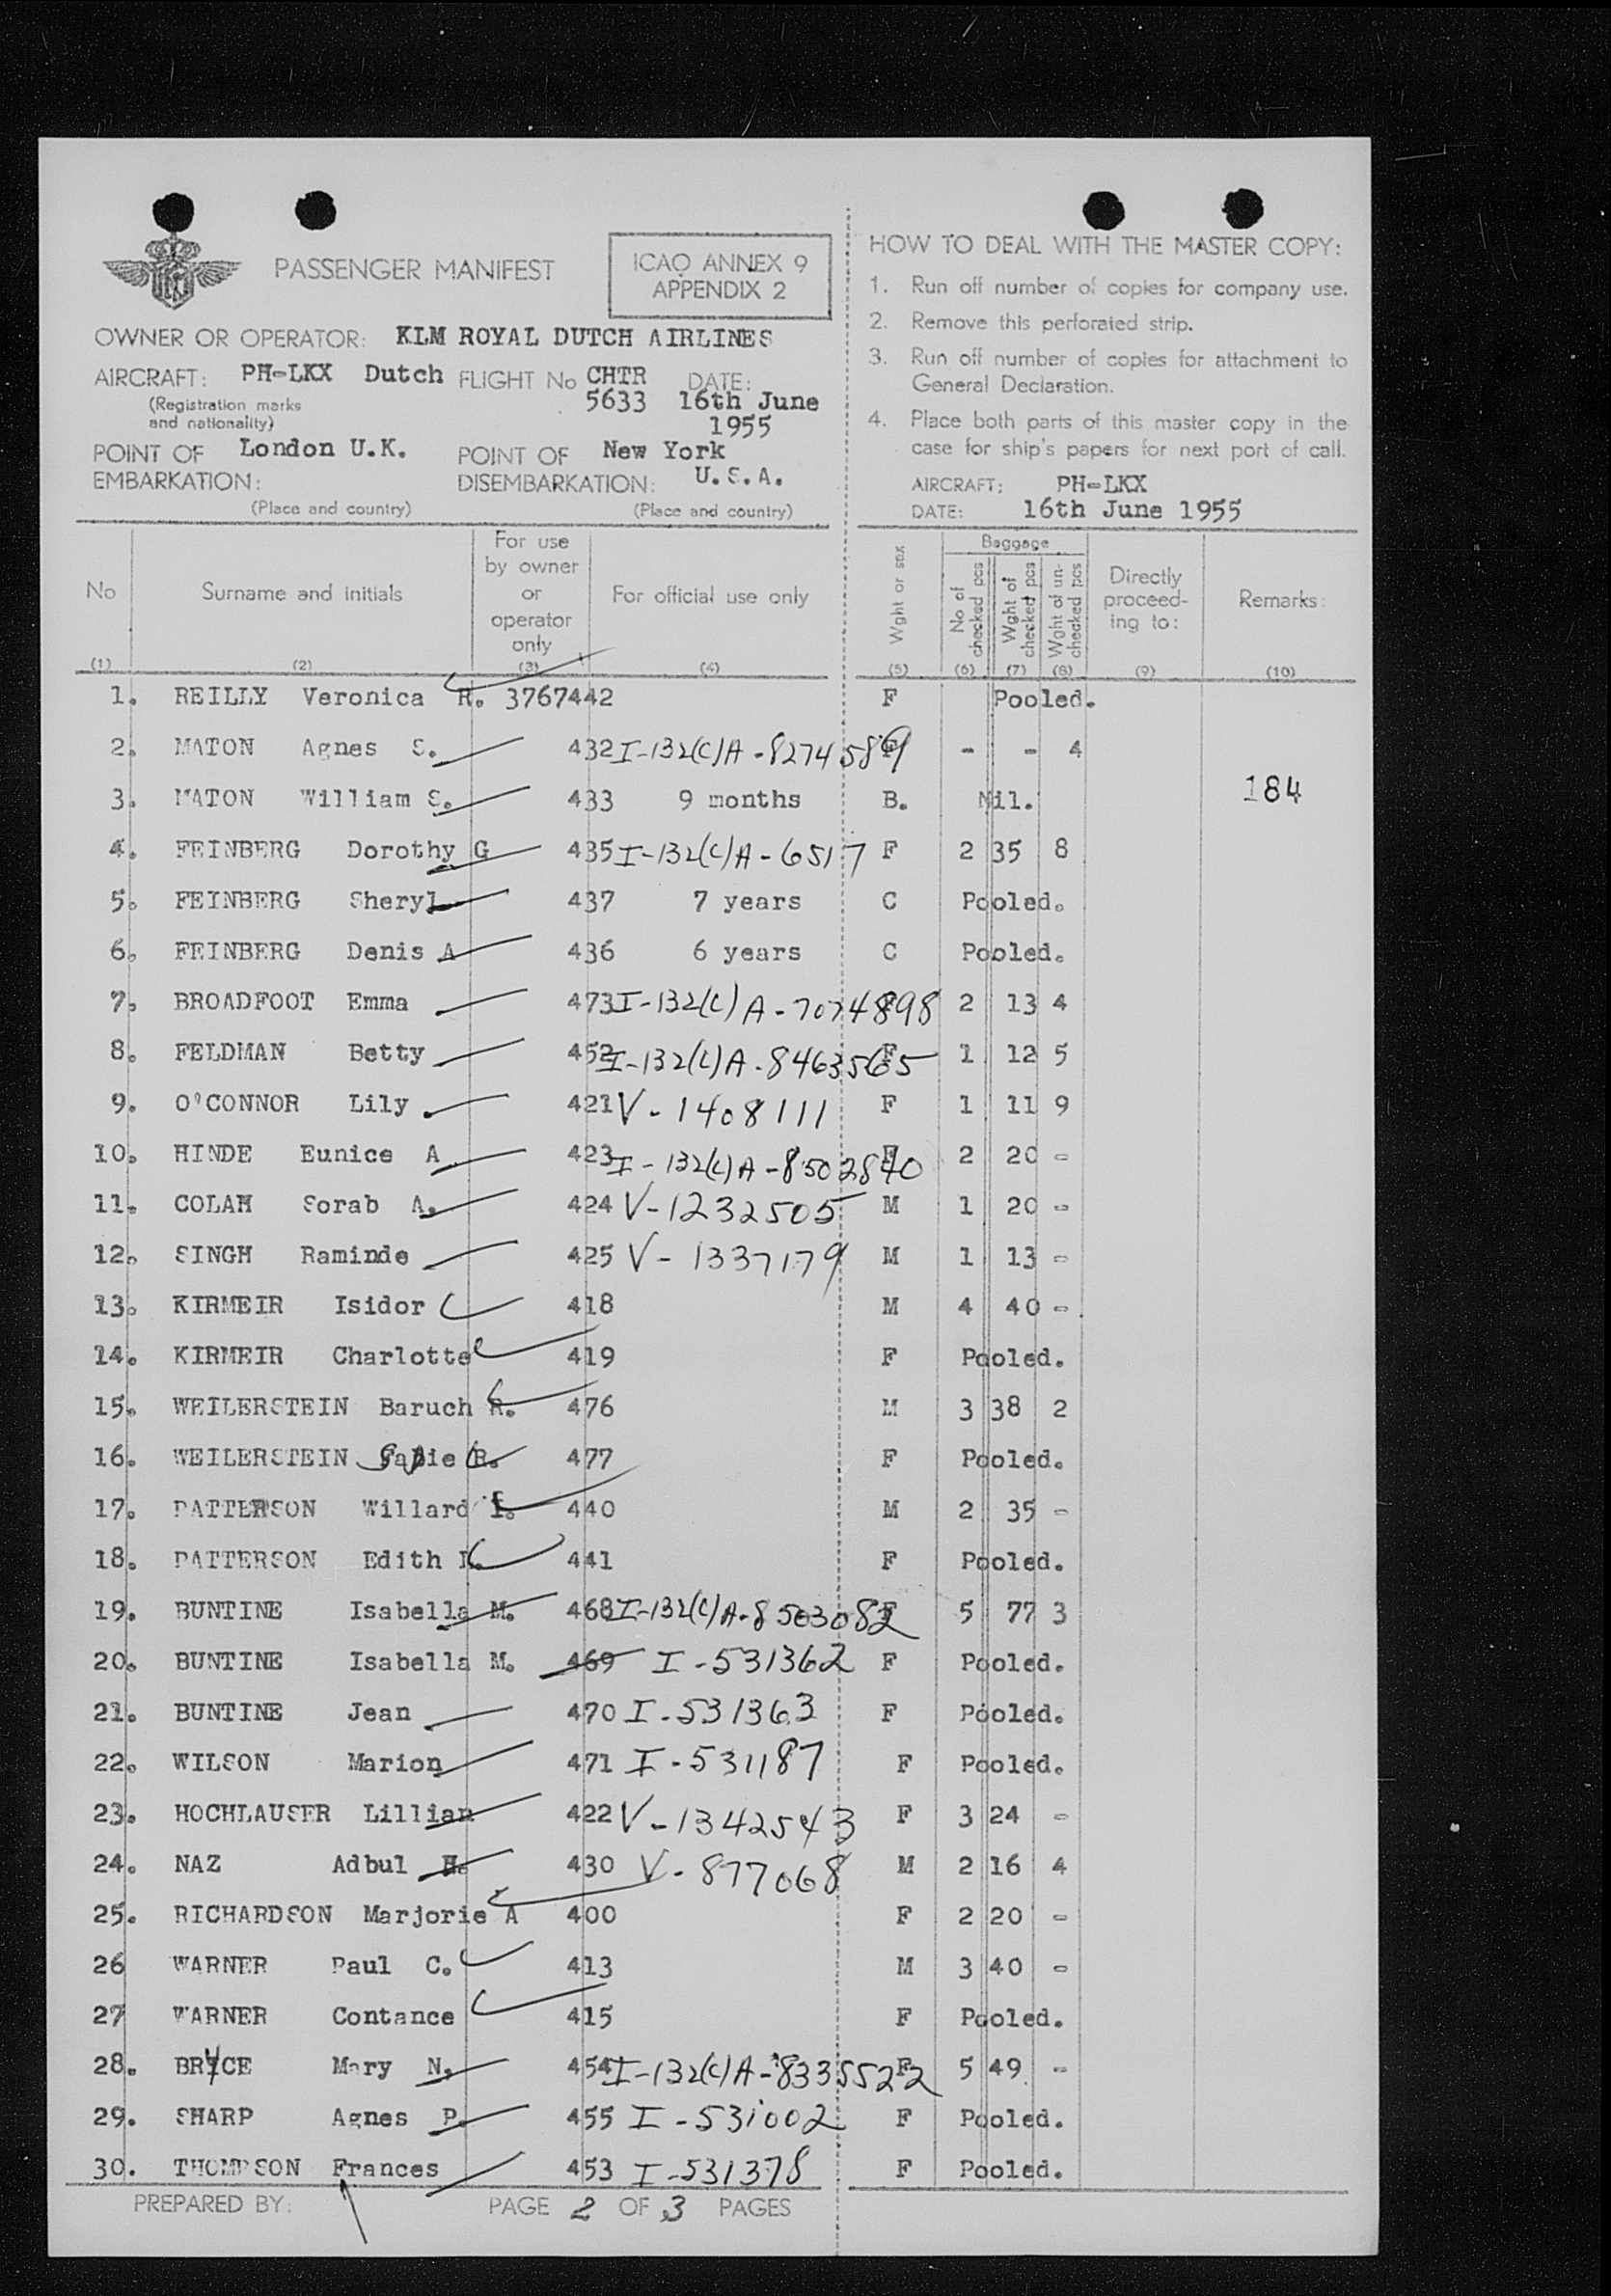 PASSENGER MANIFEST
ICAO ANNEX 9
APPENDIX 2
OWNER OR OPERATOR: KLM ROYAL DUTCH AIRLINES
AIRCRAFT: PH-LKX Dutch FLIGHT No CHTR 5633 DATE: 16th June 1955
(Registration marks
and nationality)
POINT OF EMBARKATION: London U.K. POINT OF DISEMBARKATION: New York U.S.A.
(Place and country) (Place and country)
HOW TO DEAL WITH THE MASTER COPY:
1. Run off number of copies for company use.
2. Remove this perforated strip.
3. Run off number of copies for attachment to
General Declaration.
4. Place both parts of this master copy in the
case for ship's papers for next port of call.
AIRCRAFT: PH-LKX
DATE: 16th June 1955
No Surname and initials For use by owner or operator only For official use only Wght or sex Baggage No of checked pcs Wght of checked pcs Wght of un-checked pcs Directly proceed-ing to: Remarks:
(1) (2) (3) (4) (5) (6) (7) (8) (9) (10)
1. REILLY Veronica R. 3767442 F Pooled.
2. MATON Agnes S. 432 I-132(C) A-8274589 - - 4
3. MATON William S. 433 9 months B. Nil. 184
4. FEINBERG Dorothy G 435 I-132(C) A-6517 F 2 35 8
5. FEINBERG Sheryl 437 7 years C Pooled.
6. FEINBERG Denis A 436 6 years C Pooled.
7. BROADFOOT Emma 473 I-132(C) A-7074898 2 13 4
8. FELDMAN Betty 452 I-132(C) A-8463565 F 1 12 5
9. O'CONNOR Lily 421 V-1408111 F 1 11 9
10. HINDE Eunice A 423 I-132(C) A-8502840 F 2 20 -
11. COLAH Sorab A. 424 V-1232505 M 1 20 -
12. SINGH Raminde 425 V-1337179 M 1 13 -
13. KIRMEIR Isidor 418 M 4 40 -
14. KIRMEIR Charlotte 419 F Pooled.
15. WEILERSTEIN Baruch R. 476 M 3 38 2
16. WEILERSTEIN R. 477 F Pooled.
17. PATTERSON Willard 440 M 2 35 -
18. PATTERSON Edith 441 F Pooled.
19. BUNTINE Isabella M. 468 I-132(C) A-8503082 F 5 77 3
20. BUNTINE Isabella M. 469 I-531362 F Pooled.
21. BUNTINE Jean 470 I-531363 F Pooled.
22. WILSON Marion 471 I-531187 F Pooled.
23. HOCHLAUSER Lillian 422 V-1342543 F 3 24 -
24. NAZ Adbul H. 430 V-877068 M 2 16 4
25. RICHARDSON Marjorie A 400 F 2 20 -
26 WARNER Paul C. 413 M 3 40 -
27 WARNER Contance 415 F Pooled.
28. BRYCE Mary N. 454 I-132(C) A-8335522 F 5 49 -
29. SHARP Agnes P. 455 I-531002 F Pooled.
30. THOMPSON Frances 453 I-531378 F Pooled.
PREPARED BY: PAGE 2 OF 3 PAGES